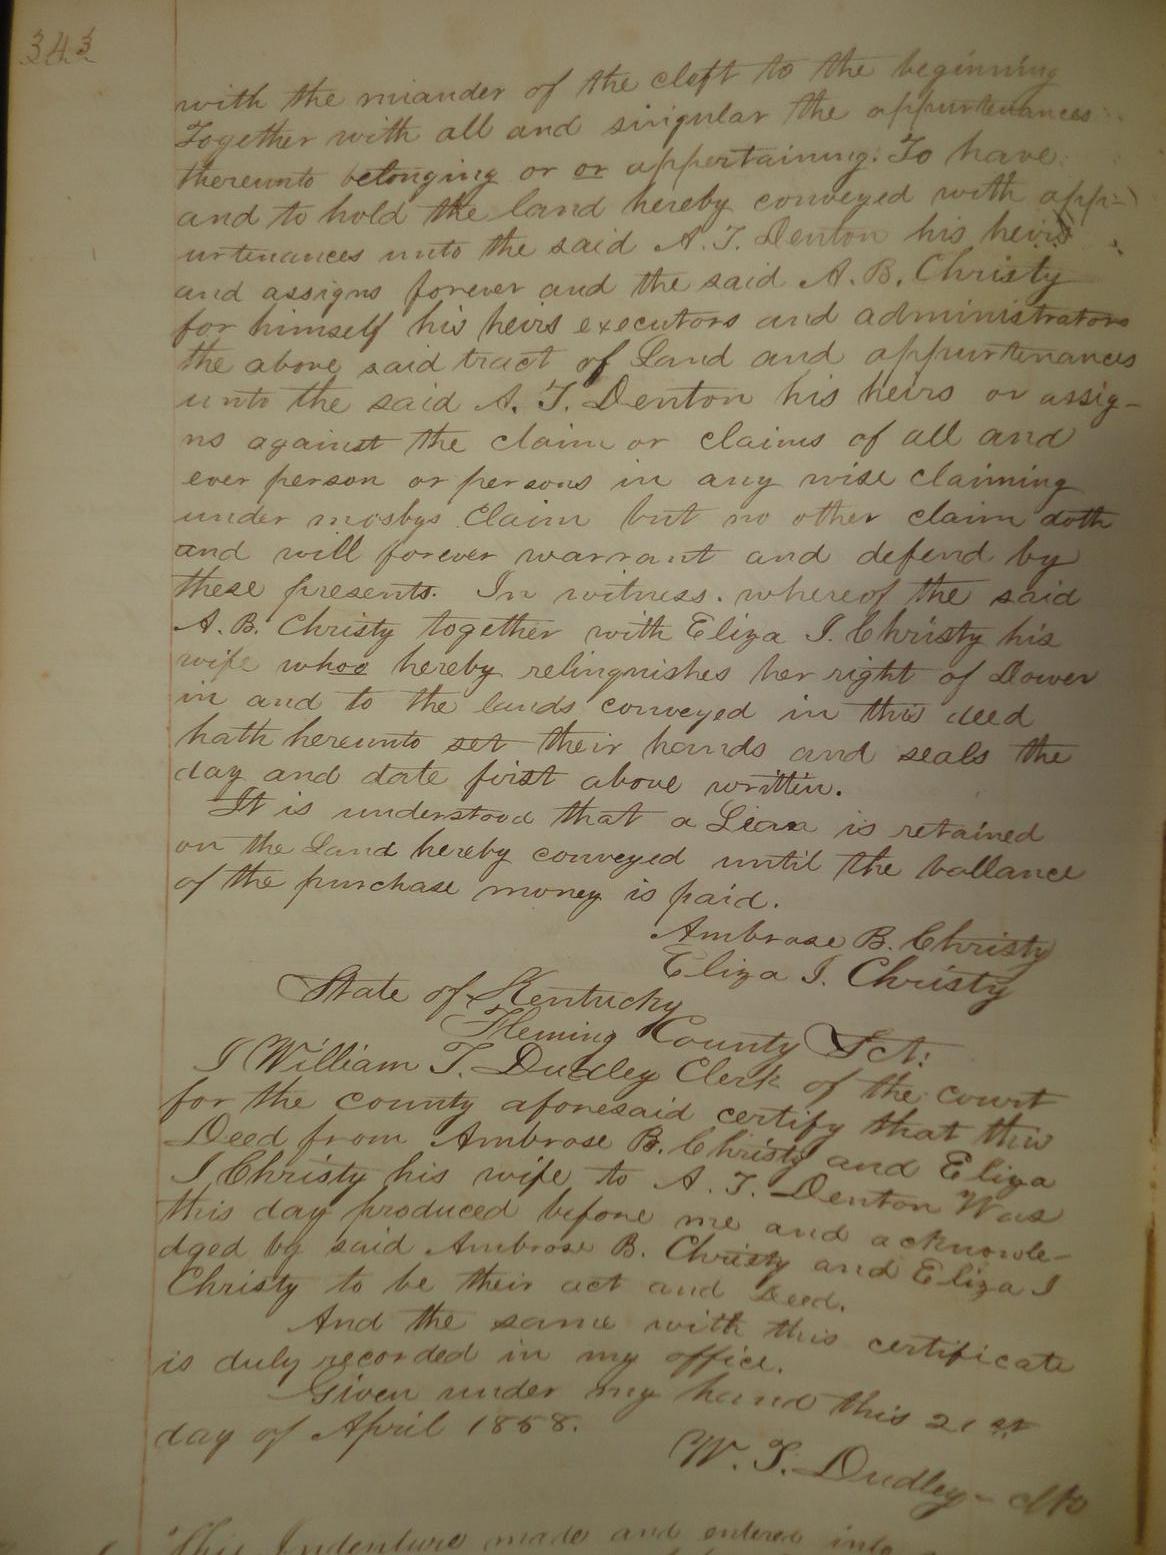 343
with the miander of the cleft to the beginning
Together with all and singular the appurtenances
thereunto belonging or or appertaining. To have
and to hold the land hereby conveyed with app-
urtenances unto the said A. T. Denton his heirs
and assigns forever and the said A. B. Christy
for himself his heirs executors and administrators
the above said tract of Land and appurtenances
unto the said A. T. Denton his heirs or assig-
ns against the claim or claims of all and
ever person or persons in any wise claiming
under mosbys Claim but no other claim doth
and will forever warrant and defend by
these presents. In witness. whereof the said
A. B. Christy together with Eliza I. Christy his
wife whoo hereby relinquishes her right of Dower
in and to the lands conveyed in this deed
hath hereunto set their hands and seals the
day and date first above written.
It is understood that a Liean is retained
on the Land hereby conveyed until the ballance
of the purchase money is paid.
Ambrose B. Christy
Eliza I. Christy
State of Kentucky
Fleming County Sct:
I William T. Dudley Clerk of the court
for the county aforesaid certify that this
Deed from Ambrose B. Christy and Eliza
I Christy his wife to A. T. Denton Was
this day produced before me and acknowle-
dged by said Ambrose B. Christy and Eliza I
Christy to be their act and Deed.
And the same with this certificate
is duly recorded in my office.
Given under my hand this 21st
day of April 1858.
W. T. Dudley - clk
This Indenture made and entered into